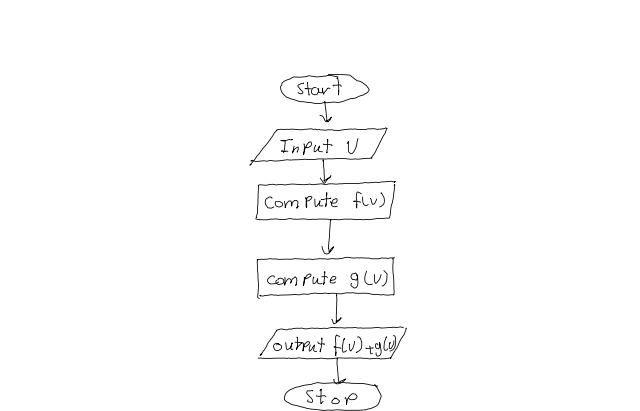 Start
Input U
compute f(u)
compute g(u)
output f(u)+g(u)
Stop